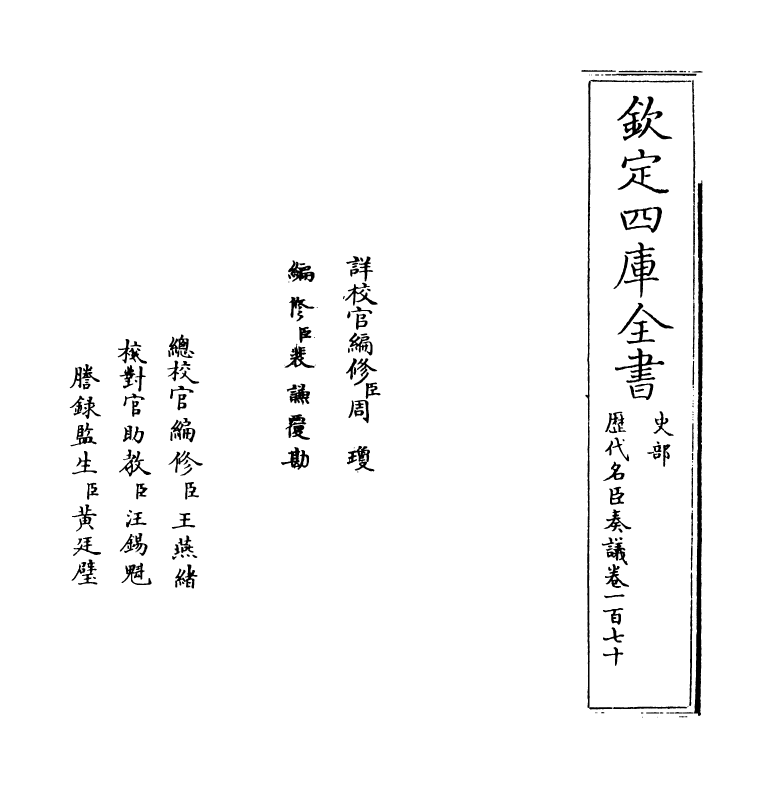 欽定四庫全書
史部
歷代名臣奏議卷一百七十
詳校官編修臣周瓊
編修臣裴謙覆勘
總校官編修臣王燕緒
校對官助教臣汪錫魁
謄錄監生臣黃廷璧